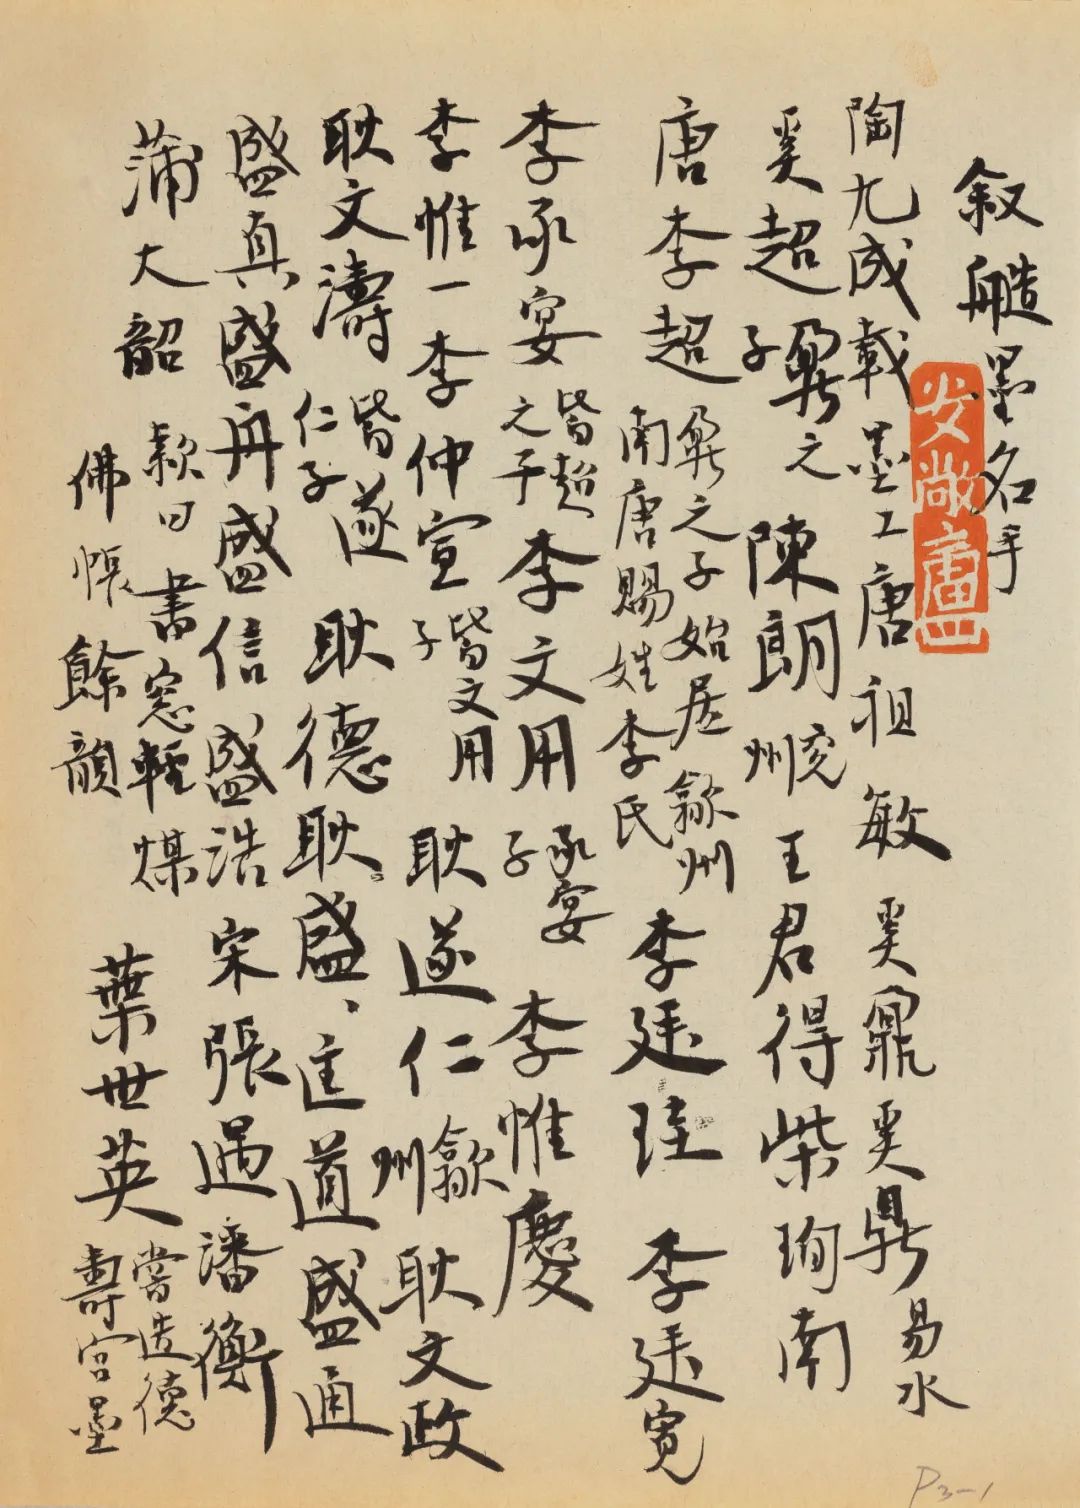 叙艁墨名手
陶九成載墨工唐祖敏奚鼐奚鼎易水
奚超鼐之子陳朗兖州王君得柴珣南
唐李超鼐之子始居歙州南唐賜姓李氏李廷珪李廷寬
李承宴皆超之子李文用承宴子李惟慶
李惟一李仲宣皆文用子耿遂仁歙州耿文政
耿文濤皆遂仁子耿德耿盛、匡道盛通
盛真盛舟盛信盛浩宋張遇潘衡
蒲大韶款曰書窓輕煤佛帳餘韻葉世英嘗造德壽宮墨
P3-1